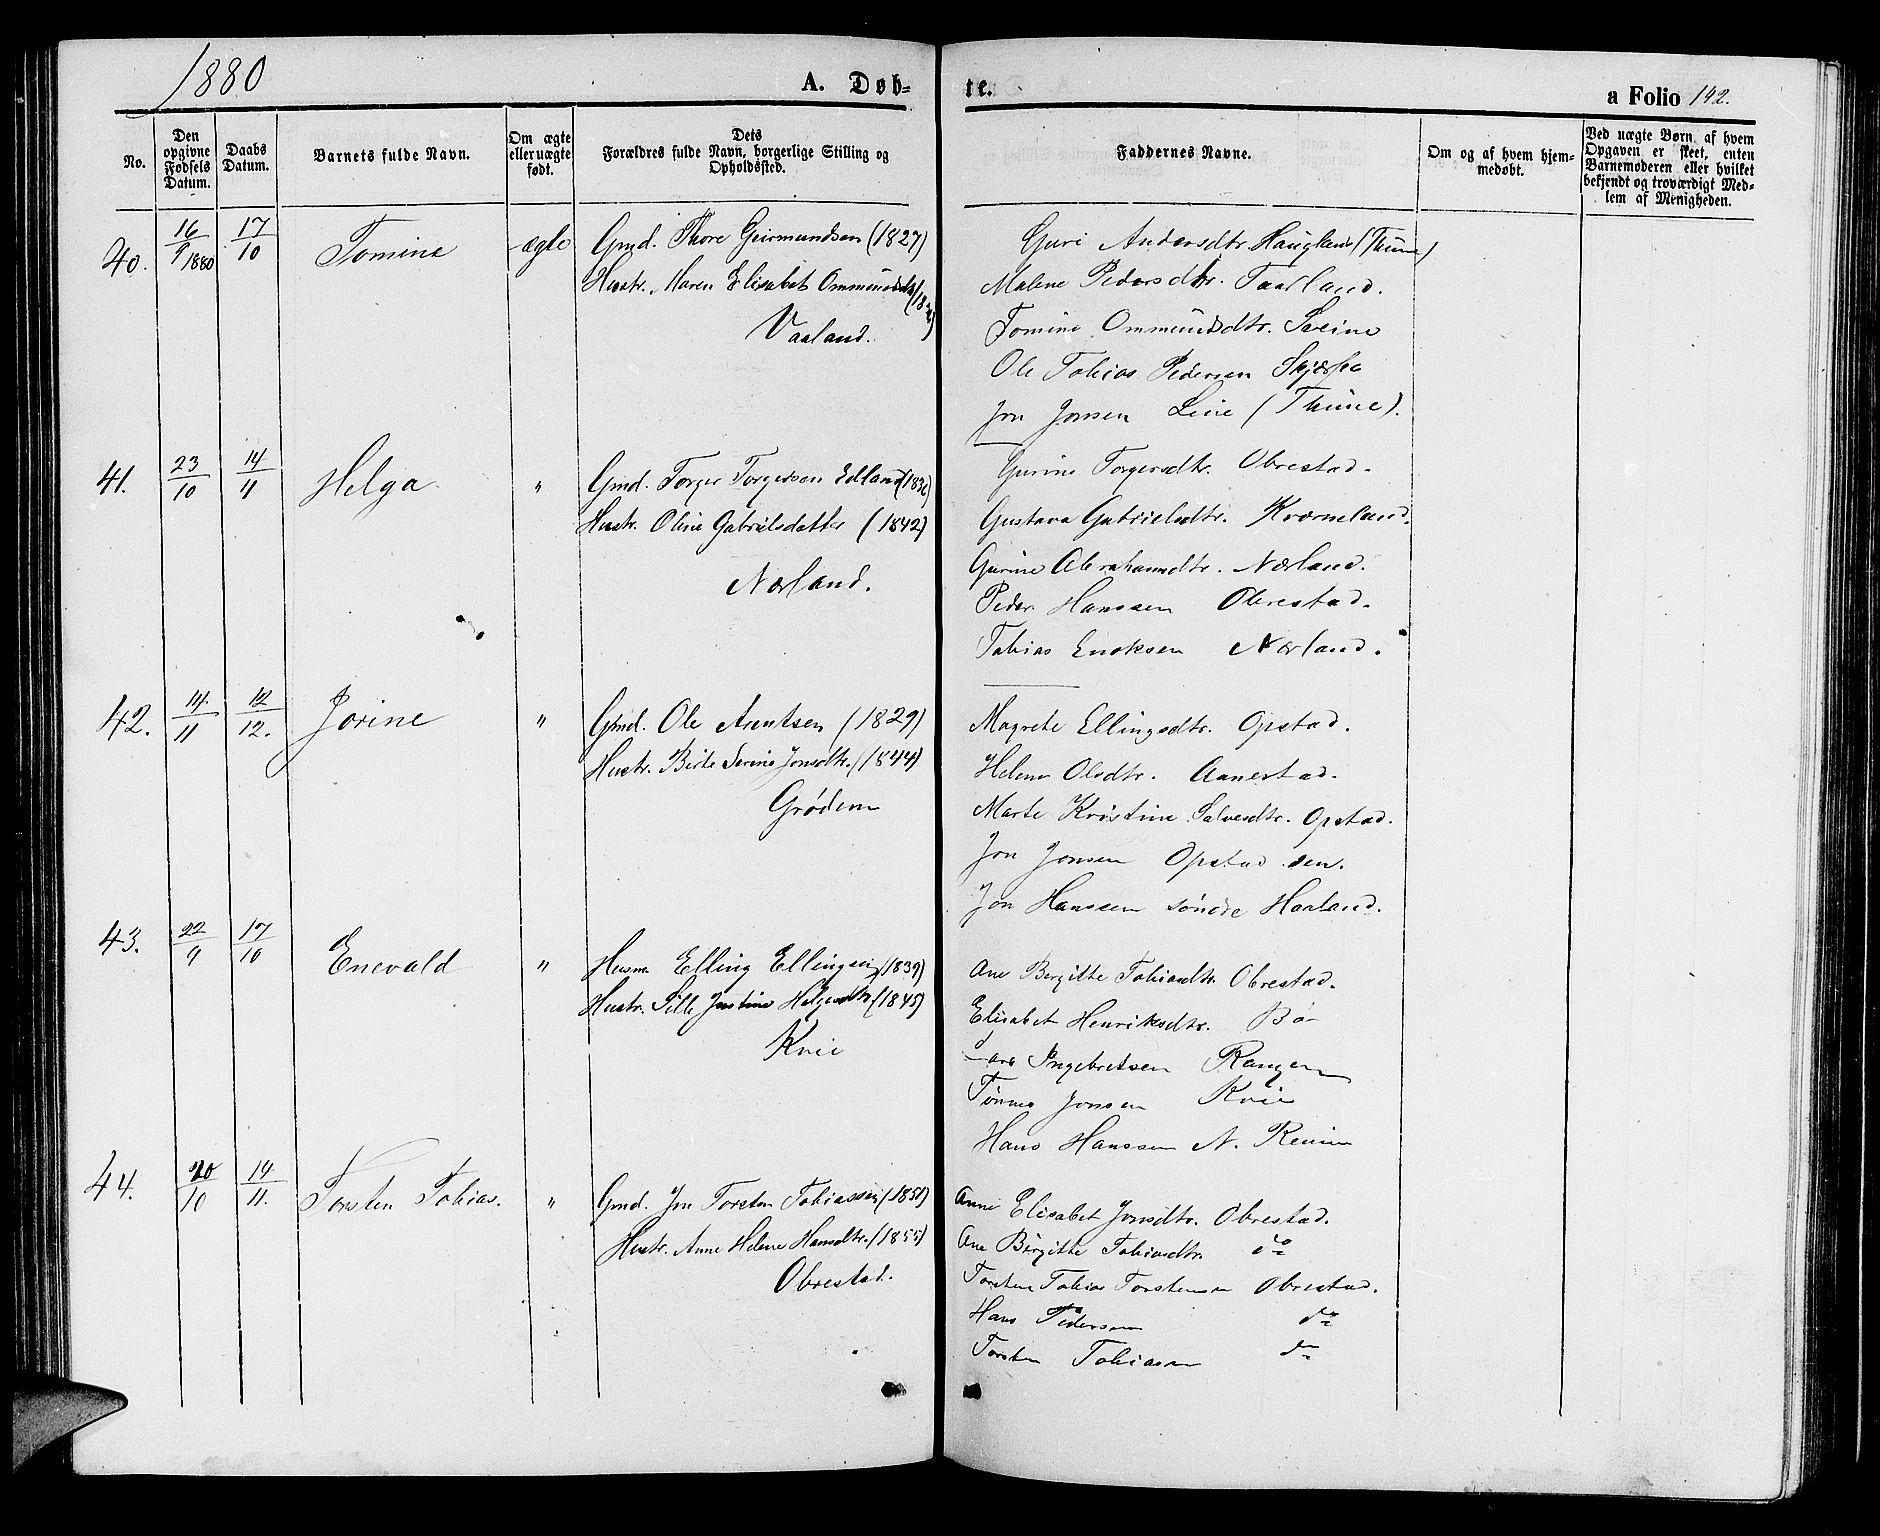 1880
A. Døb-
te.
a Folio 142.
No.
Den opgivne Fødsels Datum.
Daabs Datum.
Barnets fulde Navn.
Om ægte eller uægte født.
Dets Forældres fulde Navn, borgerlige Stilling og Opholdssted.
Faddernes Navne.
Om og af hvem hjem-
medøbt.
Ved uægte Børn, af hvem
Opgaven er skeet, enten
Barnemoderen eller hvilket
bekjendt og troværdigt Med-
lem af Menigheden.
40. 16/9 1880 17/10 Tomine ægte Gmd. Thore Geirmundsen (1827)
Hustr. Maren Elisabet Ommundsdtr
Vaaland.
Guri Andersdtr. Haugland (Thime)
Malene Pedersdtr. Taarland.
Tomine Ommundsdtr. Sveine
Ole Tobias Pedersen Skjærpe
Jon Jonsen Line (Thime).
41. 23/10 14/11 Helga " Gmd. Torger Torgersen Edland
Hustr. Oline Gabrielsdatter (1842)
Nærland.
Gurine Torgersdtr. Obrestad.
Gustava Gabrielsdtr. Kværneland.
Gurine Abrahamsdtr. Nærland.
Peder Hanssen Obrestad.
Tobias Enoksen Nærland.
42. 14/11 12/12. Jorine " Gmd. Ole Arentsen (1829)
Hustr. Birte Serine Jonsdtr. (1844)
Grødem
Magrete Ellingsdtr. Opstad.
Helene Olsdtr. Aanestad.
Marte Kristine Salvesdtr. Opstad.
Jon Jonsen Opstad sen.
Jon Hanssen søndre Haaland.
43. 22/9 17/10 Enevald " Husm. Elling Ellingsen (1839)
Hustr. Sille Justine Helgesdtr (1845)
Kvie
Ane Bergitte Tobiasdtr. Obrestad.
Elisabet Henriksdtr. Bø
Lars Ingebretsen Rangen
Tønnes Jonsen Kvie
Hans Hanssen N. Reime
44. 20/10 14/11. Torsten Tobias. " Gmd. Jon Torsten Tobiassen (1851)
Hustr. Anne Helene Hansdtr. (1855)
Obrestad.
Anne Elisabet Jonsdtr. Obrestad.
Ane Birgitte Tobiasdtr. do
Torsten Tobias Torstensen Obrestad.
Hans Pedersen do
Torsten Tobiasen do